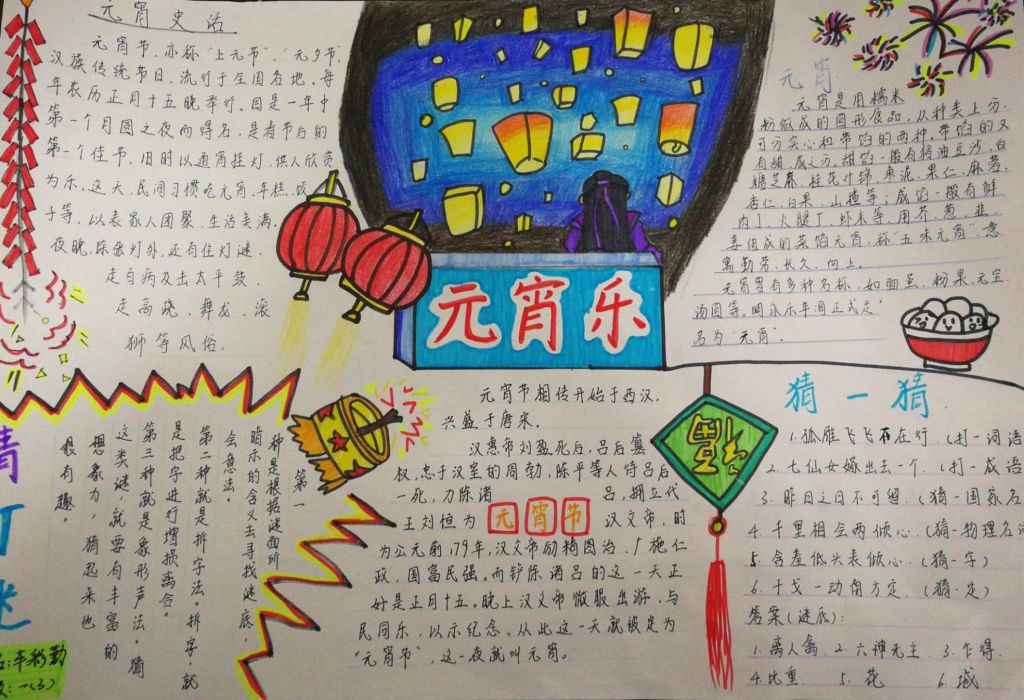 元宵史话
元宵节,亦称"上元节""元夕节",
汉族传统节日,流行于全国各地,每
年农历正月十五晚举行。因是一年中
第一个月圆之夜而得名,是春节后的
第一个佳节,旧时以通宵挂灯,供人欣赏
为乐。这天,民间习惯吃元宵、年糕、饺
子等,以表家人团聚、生活美满。
夜晚,除张灯外,还有住灯谜、
走白病及击太平鼓、
走高跷、舞龙、滚
狮等风俗.
元宵乐
元宵
元宵是用糯米
粉做成的圆形食品,从种类上分,
可分实心和带馅的两种。带馅的又
有甜、咸之分。甜馅一般有猪油豆沙、白
糖芝麻、桂花什锦、枣泥、果仁、麻蓉、
杏仁、白果、山楂等;咸馅一般有鲜
肉丁、火腿丁、虾米等。用芥、葱、韭、
姜组成的菜馅元宵,称"五味元宵",意
寓勤劳、长久、向上。
元宵曾有多种名称,如面茧、粉果、元宝、
汤圆等。明永乐年间正式定
名为"元宵".
猜灯谜
第一
种是根据谜面所
暗示的含义去寻找谜底,
会意法。
第二种就是拆字法。拆字,就
是把字进行增损离合。
第三种就是象形声法。猜
这类谜,就要有丰富的
想象力,猜忍来也
很有趣。
勤
一(3)
元宵节相传开始于西汉,
兴盛于唐宋.
汉惠帝刘盈死后,吕后篡
权,忠于汉室的周勃,陈平等人恃吕后
一死,力陈诸 吕,拥立代
王刘恒为 元宵节 汉文帝,时
为公元前179年,汉文帝励精图治,广施仁
政,国富民强。而铲除诸吕的这一天正
好是正月十五。晚上汉文帝微服出游,与
民同乐,以示纪念。从此这一天就被定为
"元宵节",这一夜就叫元宵。
福
猜一猜
1.孤雁飞飞不在行.(打一词语
2.七仙女嫁出去一个.(打一成语
3.昨日之日不可留.(猜一国家名
4.千里相会两倾心.(猜一物理名词
5.含羞低头表倾心.(猜一字)
6.干戈一动角方定.(猜一定)
答案(谜底):
1.离人禽 2.六神无主 3.乍得.
4.比重 5.花 6.城